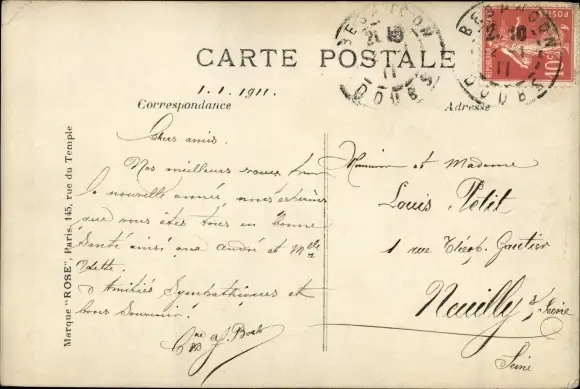 CARTE POSTALE
BESANÇON
DOUBS
BESANÇON
DOUBS
POSTES
1.1.1911.
Correspondance
Adresse
Marque "ROSE", Paris, 145, rue du Temple
Chers amis.
Nos meilleurs vœux pour
la nouvelle année, nous espérons
que vous êtes tous en bonne
santé ainsi que André et Mlle
Odette.
Amitiés sympathiques et
bons souvenirs.
Monsieur et Madame
Louis Petit
1 rue Théop. Gautier
Neuilly s/ Seine
Seine